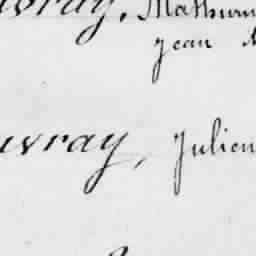 uvray, Mathurin
Jean M
uvray, Julien